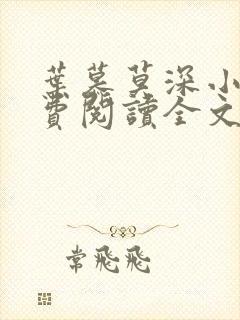 葉莫莫深小
費閱讀全文
常飛飛